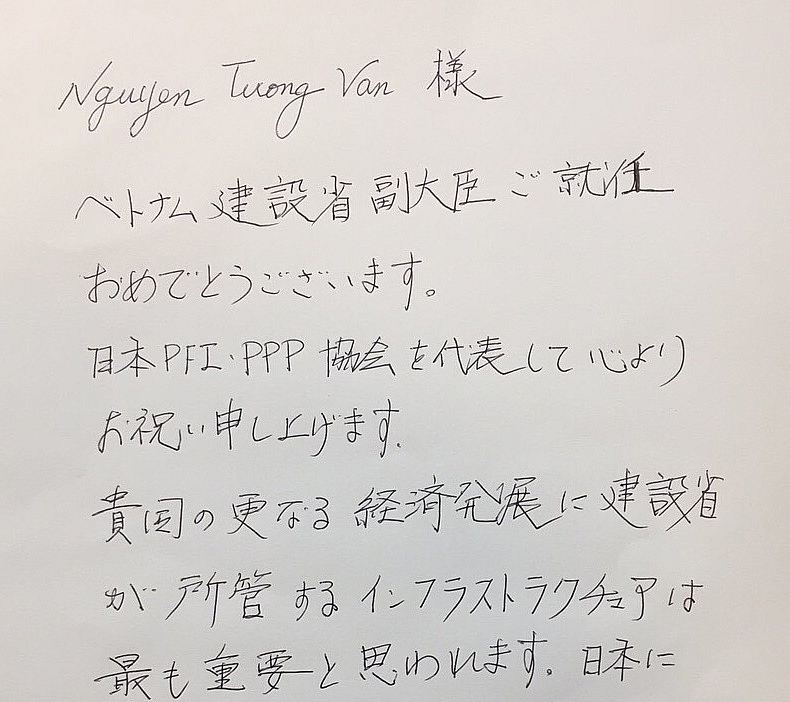 Nguyen Tuong Van 様
ベトナム建設省副大臣ご就任
おめでとうございます。
日本PFI・PPP協会を代表して心より
お祝い申し上げます。
貴国の更なる経済発展に建設省
が所管するインフラストラクチュアは
最も重要と思われます。日本に